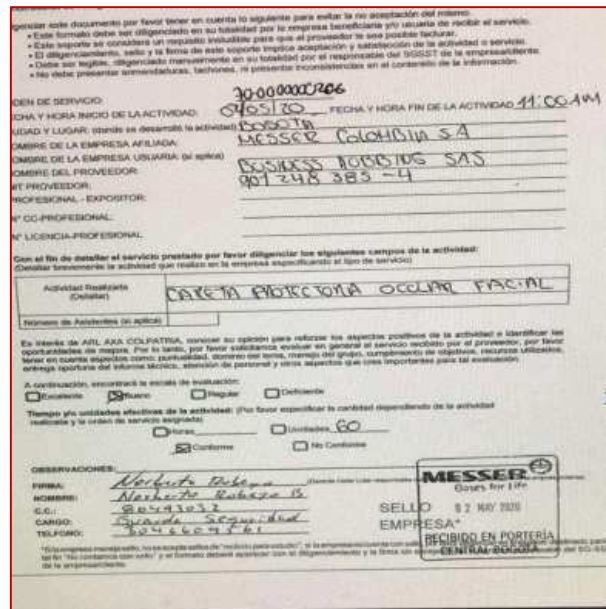 genciar este documento por favor tener en cuenta lo siguiente para evitar la no aceptación del mismo.
• Este formato debe ser diligenciado en su totalidad por la empresa beneficiaria y/o usuaria de recibir el servicio.
• Este soporte se considera un requisito indispensable para que el proveedor le sea posible facturar.
• El diligenciamiento, sello y la firma de este soporte implica aceptación y satisfacción de la actividad o servicio.
• Debe ser legible, diligenciado manualmente en su totalidad por el responsable del SGSST de la empresa/cliente.
• No debe presentar enmendaduras, tachones, ni presentar inconsistencias en el contenido de la información.
DEN DE SERVICIO:
CHA Y HORA INICIO DE LA ACTIVIDAD: 04/05/20 FECHA Y HORA FIN DE LA ACTIVIDAD 11:00 AM
UDAD Y LUGAR: (donde se desarrolló la actividad) BOGOTA
OMBRE DE LA EMPRESA AFILIADA: MESSER COLOMBIA SA
OMBRE DE LA EMPRESA USUARIA: (si aplica)
OMBRE DEL PROVEEDOR: BUSINESS SAS
IT PROVEEDOR: 901 248 385 -4
PROFESIONAL - EXPOSITOR:
N° CC-PROFESIONAL:
N° LICENCIA-PROFESIONAL
Con el fin de detallar el servicio prestado por favor diligenciar los siguientes campos de la actividad:
(Detallar brevemente la actividad que realizo en la empresa especificando el tipo de servicio)
Actividad Realizada CARETA PROTECTORA OCULAR FACIAL
(Detallar)
Número de Asistentes (si aplica)
Es interés de ARL AXA COLPATRIA, conocer su opinión para reforzar los aspectos positivos de la actividad e identificar las
oportunidades de mejora. Por lo tanto, por favor solicitamos evaluar en general el servicio recibido por el proveedor, por favor
tener en cuenta aspectos como: puntualidad, dominio del tema, manejo del grupo, cumplimiento de objetivos, recursos utilizados,
entrega oportuna del informe técnico, atención de personal y otros aspectos que crea importantes para tal evaluación.
A continuación, encontrará la escala de evaluación:
Excelente Bueno Regular Deficiente
Tiempo y/o unidades efectivas de la actividad: (Por favor especificar la cantidad dependiendo de la actividad
realizada y la orden de servicio asignada)
Horas Unidades 60
Conforme No Conforme
OBSERVACIONES:
FIRMA: Norberto
NOMBRE: Norberto B
C.C.: 80493032
CARGO: Guarda Seguridad
TELEFONO:
MESSER
Gases for Life
SELLO 02 MAY 2020
EMPRESA*
RECIBIDO EN PORTERÍA
CENTRAL BOGOTÁ
de la empresa/cliente.